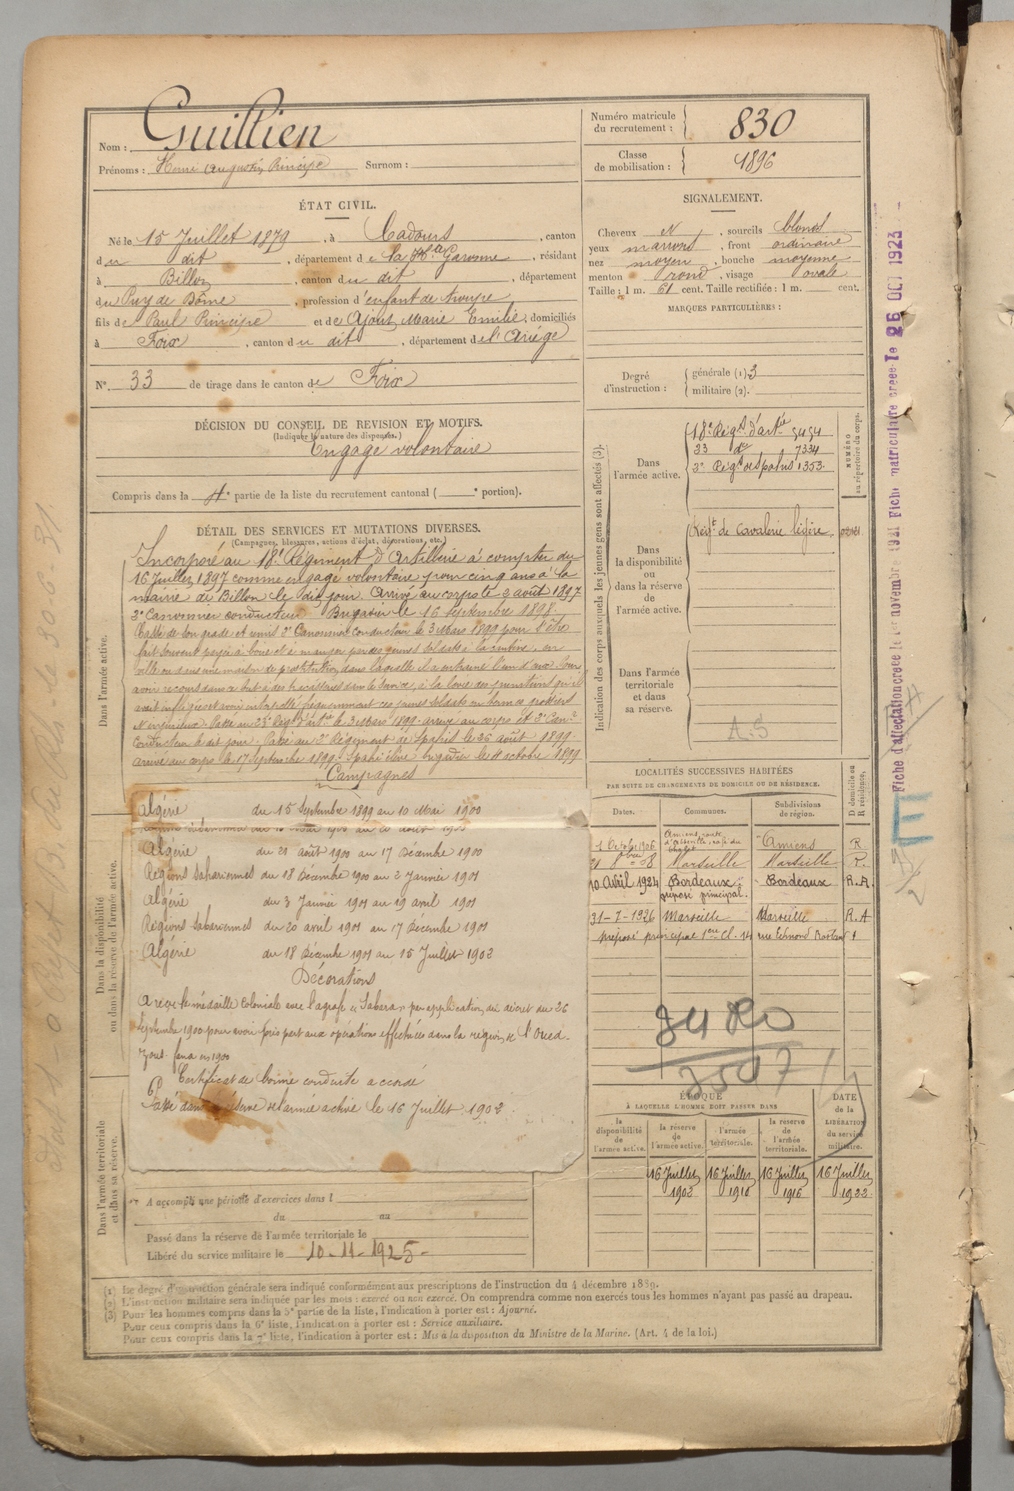 Nom : Guillien
Prénoms : Henri Augustin Principe Surnom :
Numéro matricule du recrutement : 830
Classe de mobilisation : 1896
ÉTAT CIVIL.
Né le 15 Juillet 1879, à Cadours, canton
du dit, département de la Hte Garonne, résidant
à Billom, canton du dit, département
du Puy de Dôme, profession d'enfant de troupe
fils de Paul Principe et de Ajout, Marie Emilie, domiciliés
à Foix, canton du dit, département de l'Ariège
N°. 33 de tirage dans le canton de Foix
SIGNALEMENT.
Cheveux N, sourcils blonds
yeux marrons, front ordinaire
nez moyen, bouche moyenne
menton rond, visage ovale
Taille : 1 m. 61 cent. Taille rectifiée : 1 m. cent.
MARQUES PARTICULIÈRES :
Degré d'instruction : générale (1). 3
militaire (2).
DÉCISION DU CONSEIL DE REVISION ET MOTIFS.
(Indiquer la nature des dispenses.)
Engagé volontaire
Compris dans la 4e partie de la liste du recrutement cantonal ( e portion).
DÉTAIL DES SERVICES ET MUTATIONS DIVERSES.
(Campagnes, blessures, actions d'éclat, décorations, etc.)
Dans l'armée active.
Incorporé au 18e Régiment d'Artillerie à compter du
16 Juillet 1897 comme engagé volontaire pour cinq ans à la
mairie de Billom le dit jour. Arrivé au corps le 2 août 1897
2e Canonnier conducteur Brigadier le 16 Septembre 1898
Cassé de son grade et remis 2e Canonnier Conducteur le 3 Mars 1899 pour s'être
fait souvent payer à boire et à manger par des jeunes soldats à la cantine, en
ville ou dans une maison de prostitution dans laquelle il a entraîné l'un d'eux
avoir recours dans ce but à des tracasseries dans le service, à la levée des punitions qu'il
avait infligées et avoir interpellé fréquemment ces jeunes soldats en termes grossiers
et injurieux. Passé au 23e Régt d'artie le 3 Mars 1899 arrivé au corps et 2e Canr
Conducteur le dit jour. Passé au 3e Régiment de Spahis le 26 août 1899
arrivé au corps le 17 Septembre 1899. Spahi élève brigadier le 11 octobre 1899
Campagnes
Algérie du 15 Septembre 1899 au 10 Mai 1900
Algérie du 21 août 1900 au 17 Décembre 1900
Régions Sahariennes du 18 Décembre 1900 au 2 Janvier 1901
Algérie du 3 Janvier 1901 au 19 avril 1901
Régions Sahariennes du 20 avril 1901 au 17 Décembre 1901
Algérie du 18 Décembre 1901 au 15 Juillet 1902
Décorations
A reçu la médaille Coloniale avec l'agrafe "Sahara" par application du décret du 26
Septembre 1900 pour avoir pris part aux opérations effectuées dans la région de l'Oued-
Zous-fana en 1900
Certificat de bonne conduite accordé
Passé dans la réserve de l'armée active le 16 Juillet 1902
Dans la disponibilité ou dans la réserve de l'armée active.
Dans l'armée territoriale et dans sa réserve.
A accompli une période d'exercices dans l
du au
Passé dans la réserve de l'armée territoriale le
Libéré du service militaire le 10-11-1925-
Indication des corps auxquels les jeunes gens sont affectés (3).
NUMÉRO au répertoire du corps.
Dans l'armée active.
18e Régt d'artie 5454
33 do 7334
3e Régt de spahis 1353
Dans la disponibilité ou dans la réserve de l'armée active.
Régt de Cavalerie légère
Dans l'armée territoriale et dans sa réserve.
A.S
LOCALITÉS SUCCESSIVES HABITÉES
PAR SUITE DE CHANGEMENTS DE DOMICILE OU DE RÉSIDENCE.
Dates. Communes. Subdivisions de région. D domicile ou R résidence.
1 Octobre 1906 Amiens, route d'Abbeville Amiens R
21 8bre 08 Marseille Marseille R.
10 Avril 1924 Bordeaux préposé principal. Bordeaux R.A.
31-7-1926 Marseille Marseille R.A
préposé principal 1ere Cl. 14 rue Edmond Rostand
3480
3507
ÉPOQUE
À LAQUELLE L'HOMME DOIT PASSER DANS
DATE de la LIBÉRATION du service militaire.
la disponibilité de l'armée active. la réserve de l'armée active. l'armée territoriale. la réserve de l'armée territoriale.
16 Juillet 1902 16 Juillet 1910 16 Juillet 1916 16 Juillet 1922
(1) Le degré d'instruction générale sera indiqué conformément aux prescriptions de l'instruction du 4 décembre 1889.
(2) L'instruction militaire sera indiquée par les mots : exercé ou non exercé. On comprendra comme non exercés tous les hommes n'ayant pas passé au drapeau.
(3) Pour les hommes compris dans la 5e partie de la liste, l'indication à porter est : Ajourné.
Pour ceux compris dans la 6e liste, l'indication à porter est : Service auxiliaire.
Pour ceux compris dans la 7e liste, l'indication à porter est : Mis à la disposition du Ministre de la Marine. (Art. 4 de la loi.)
Fiche d'affectation créée le 1er novembre 1921 Fiche matriculaire créée le 26 OCT 1923
E